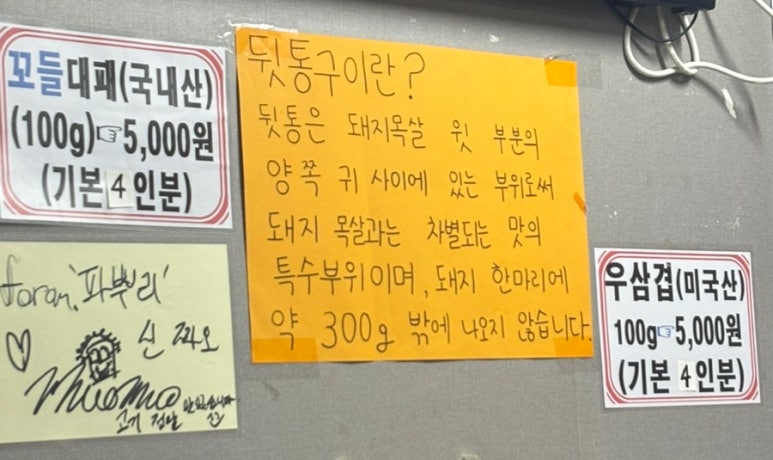 꼬들대패(국내산)
(100g)☞5,000원
(기본 4 인분)
뒷통구이란?
뒷통은 돼지목살 윗 부분의
양쪽 귀 사이에 있는 부위로써
돼지 목살과는 차별되는 맛의
특수부위이며, 돼지 한마리에
약 300g 밖에 나오지 않습니다.
우삼겹(미국산)
100g☞5,000원
(기본 4 인분)
'파뿌리'
♡
고기 정말